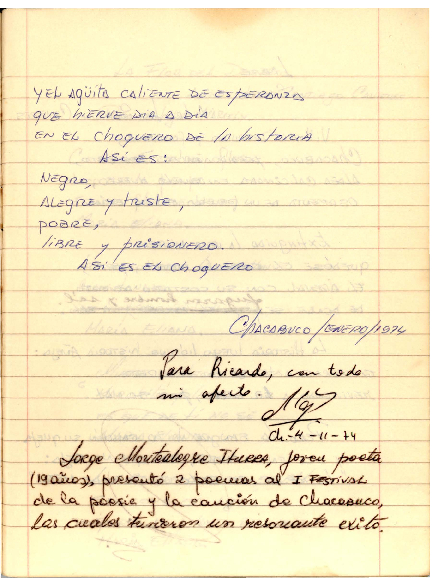 Y EL AGÜITA CALIENTE DE ESPERANZA
QUE HIERVE DIA A DIA
EN EL CHOQUERO DE LA HISTORIA
ASI ES:
NEGRO,
ALEGRE Y TRISTE,
POBRE,
LIBRE Y PRISIONERO.
ASI ES EL CHOQUERO
CHACABUCO/ENERO/1974
Para Ricardo, con todo
mi afecto.
Ch-4-11-74
Jorge Montealegre Iturra, joven poeta
(19 años), presentó 2 poemas al I FESTIVAL
de la poesía y la canción de Chacabuco,
las cuales tuvieron un resonante exito.